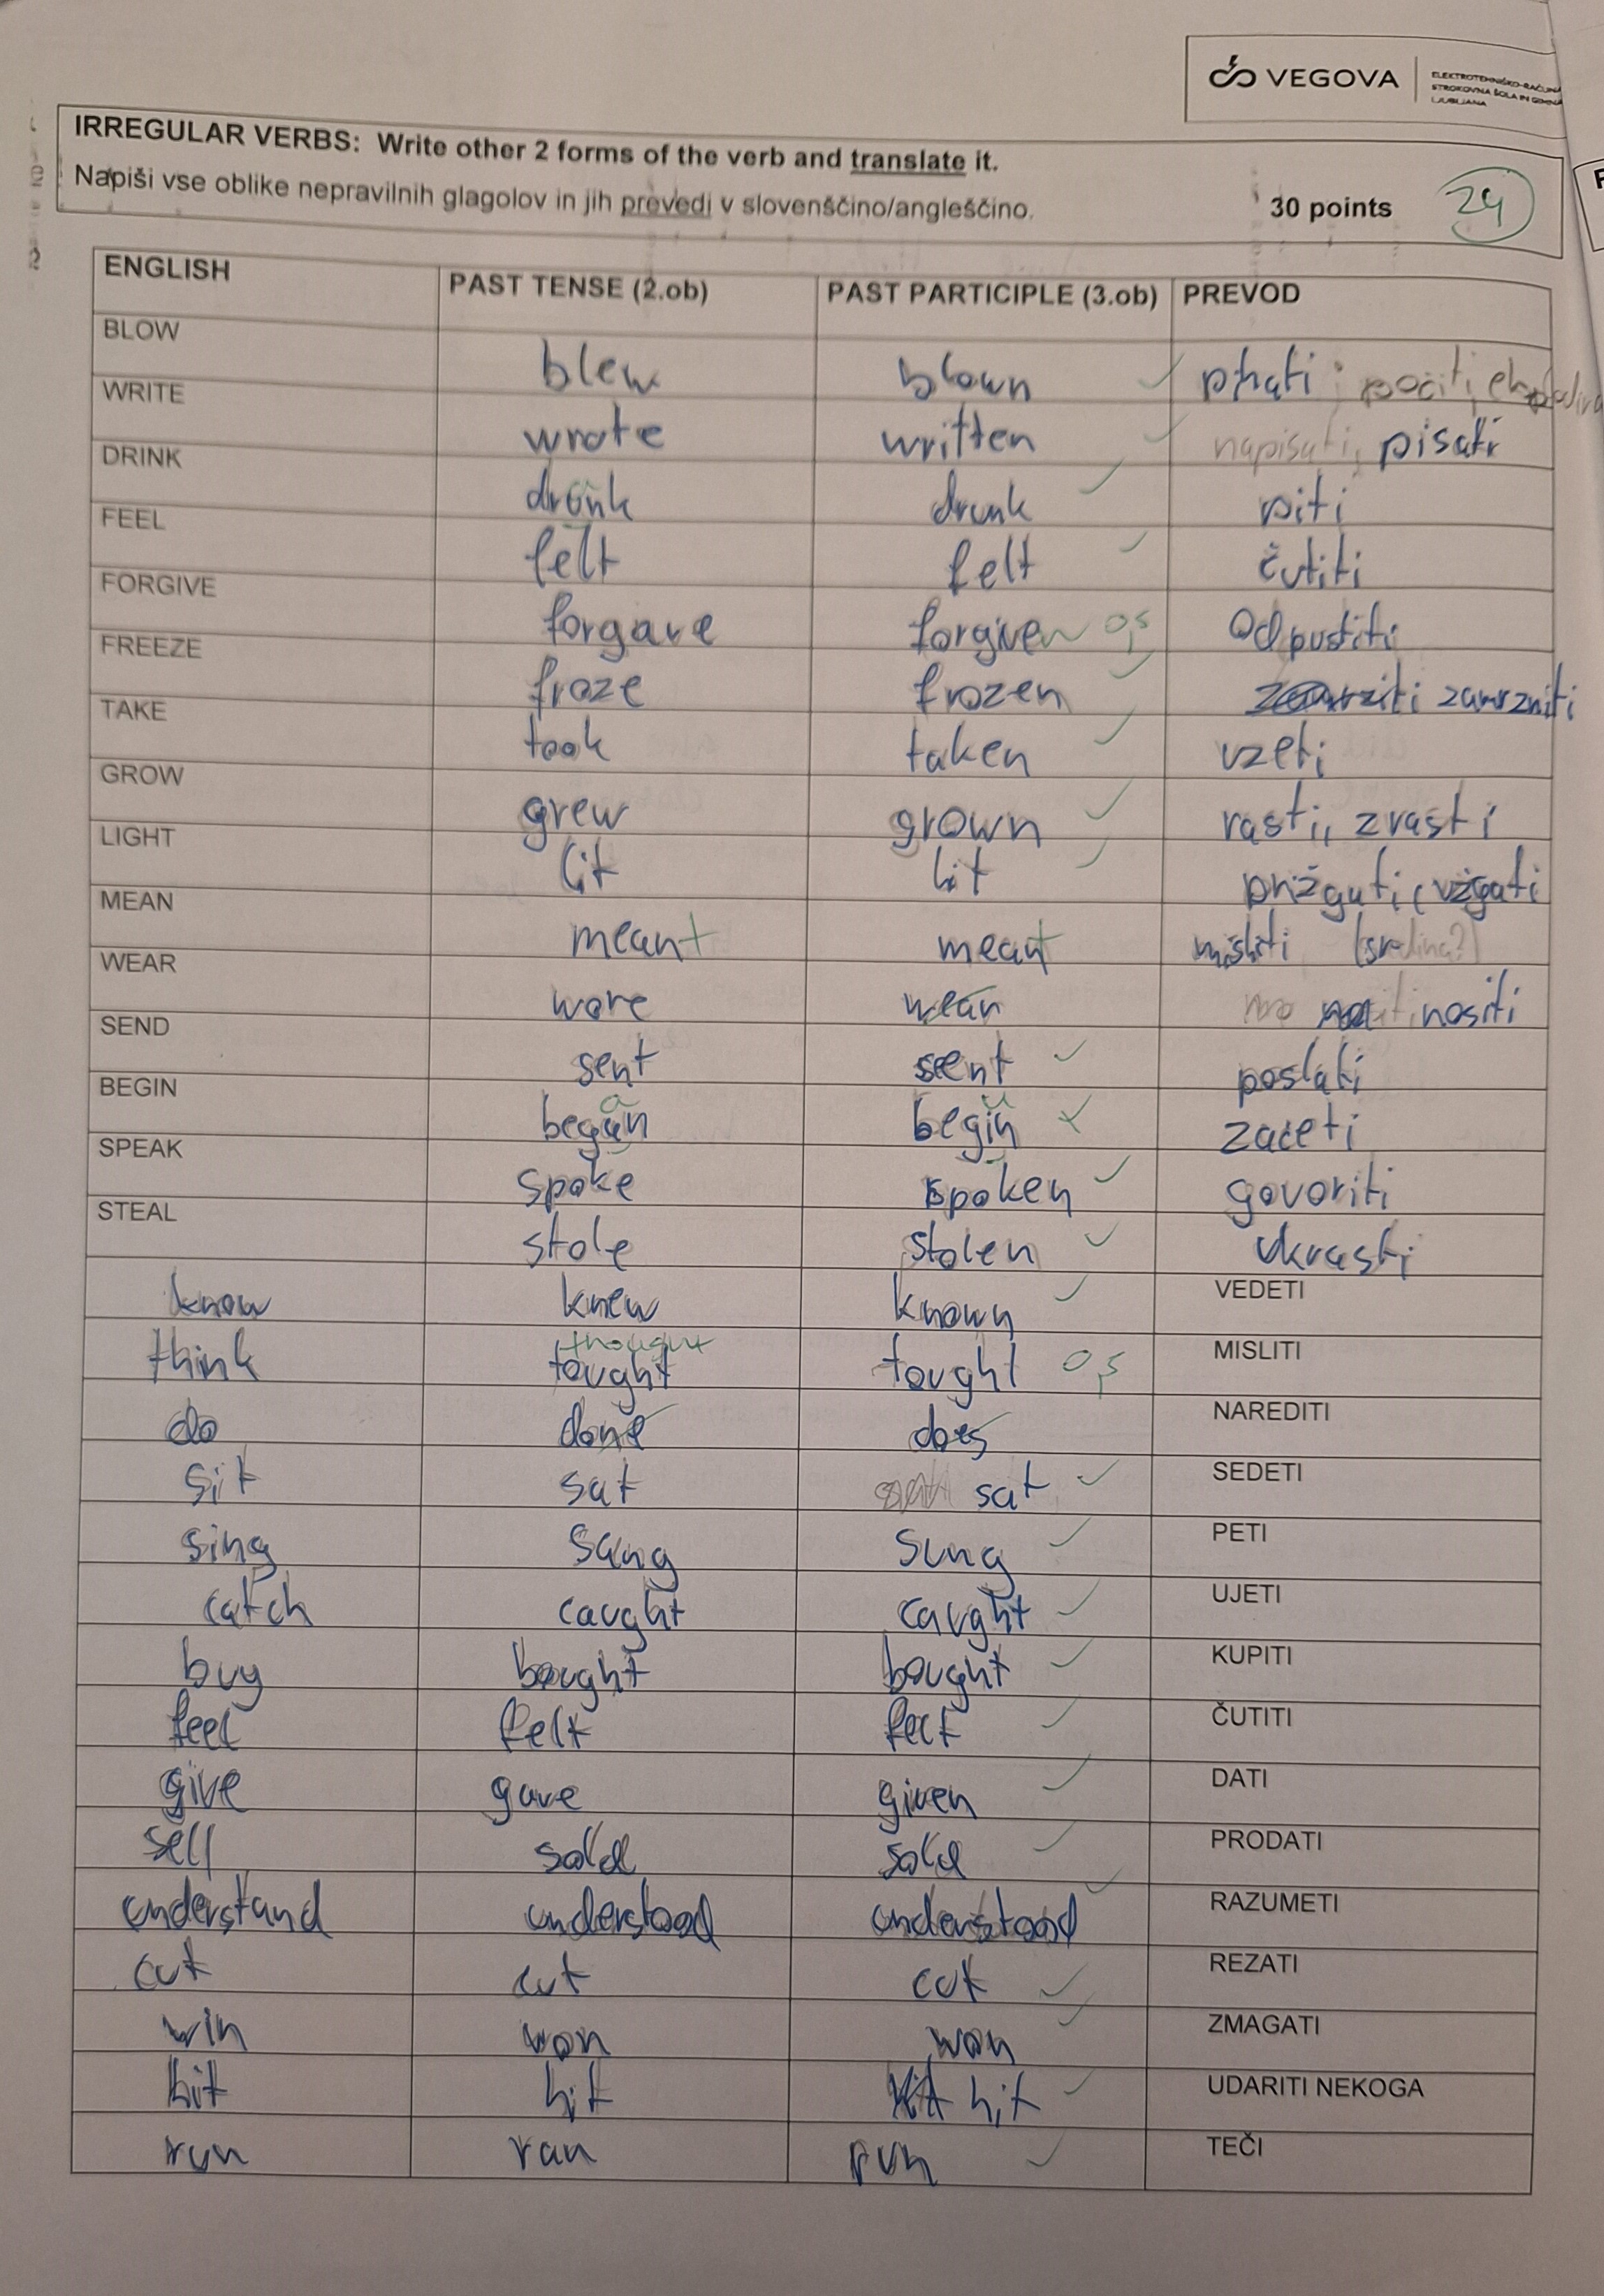 VEGOVA
ELEKTROTEHNIŠKO-RAČUN
STROKOVNA ŠOLA IN GIMNA
LJUBLJANA
IRREGULAR VERBS: Write other 2 forms of the verb and translate it.
Napiši vse oblike nepravilnih glagolov in jih prevedi v slovenščino/angleščino.
30 points 24
ENGLISH PAST TENSE (2.ob) PAST PARTICIPLE (3.ob) PREVOD
BLOW blew blown pihati počiti,
WRITE wrote written napisati, pisati
DRINK drunk piti
FEEL felt felt čutiti
FORGIVE forgave forgiven 0,5 odpustiti
FREEZE froze frozen zamrzniti
TAKE took taken vzeti
GROW grew grown rasti, zrasti
LIGHT lit lit prižgati, vžgati
MEAN meant meant misliti (sredina?)
WEAR wore nositi
SEND sent sent poslati
BEGIN začeti
SPEAK spoke spoken govoriti
STEAL stole stolen ukrasti
know knew known VEDETI
thought
think tought tought 0,5 MISLITI
do done does NAREDITI
sit sat sat SEDETI
sing sang sung PETI
catch caught caught UJETI
buy bought bought KUPITI
feel felt felt ČUTITI
give gave given DATI
sell sold sold PRODATI
understand understood understood RAZUMETI
cut cut cut REZATI
win won won ZMAGATI
hit hit hit UDARITI NEKOGA
run ran run TEČI